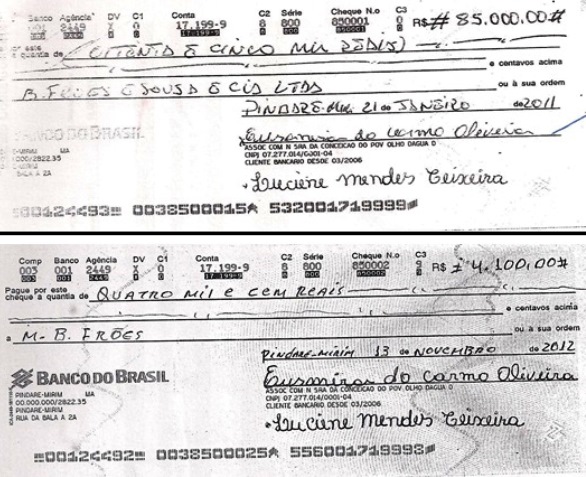 Banco Agência DV C1 Conta C2 Série Cheque N.o C3
001 2449 X 0 17.199-9 8 800 850001 8 R$ # 85.000,00#
2449 17-199-9 800 850001
por este
a quantia de (OITENTA E CINCO MIL REAIS)
e centavos acima
B. FRÓES E SOUSA E CIA LTDA ou à sua ordem
PINDARÉ-MIR, 21 de JANEIRO de 2011
BANCO DO BRASIL
do carmo Oliveira
ASSOC COM N SRA DA CONCEICAO DO POV OLHO DAGUA 0
CNPJ 07.277.014/0001-04
CLIENTE BANCARIO DESDE 03/2006
Luciene Mendes Teixeira
E-MIRIM MA
000/2822.35
E-MIRIM
BALA A 2A
00124493 0038500015 532001719999
Comp Banco Agência DV C1 Conta C2 Série Cheque N.o C3
003 001 2449 X 0 17.199-9 8 800 850002 8 R$ # 4.100,00#
003 001 2449 17-199-9 800 850002
Pague por este
cheque a quantia de QUATRO MIL E CEM REAIS
e centavos acima
a M. B. FRÓES ou à sua ordem
PINDARÉ-MIRIM 13 de NOVEMBRO de 2012
BANCO DO BRASIL
do carmo Oliveira
PINDARE-MIRIM MA
00.000.000/2822.35
PINDARE-MIRIM
RUA DA BALA A 2A
ASSOC COM N SRA DA CONCEICAO DO POV OLHO DAGUA 0
CNPJ 07.277.014/0001-04
CLIENTE BANCARIO DESDE 03/2006
Luciene Mendes Teixeira
00124492 0038500025 556001719998